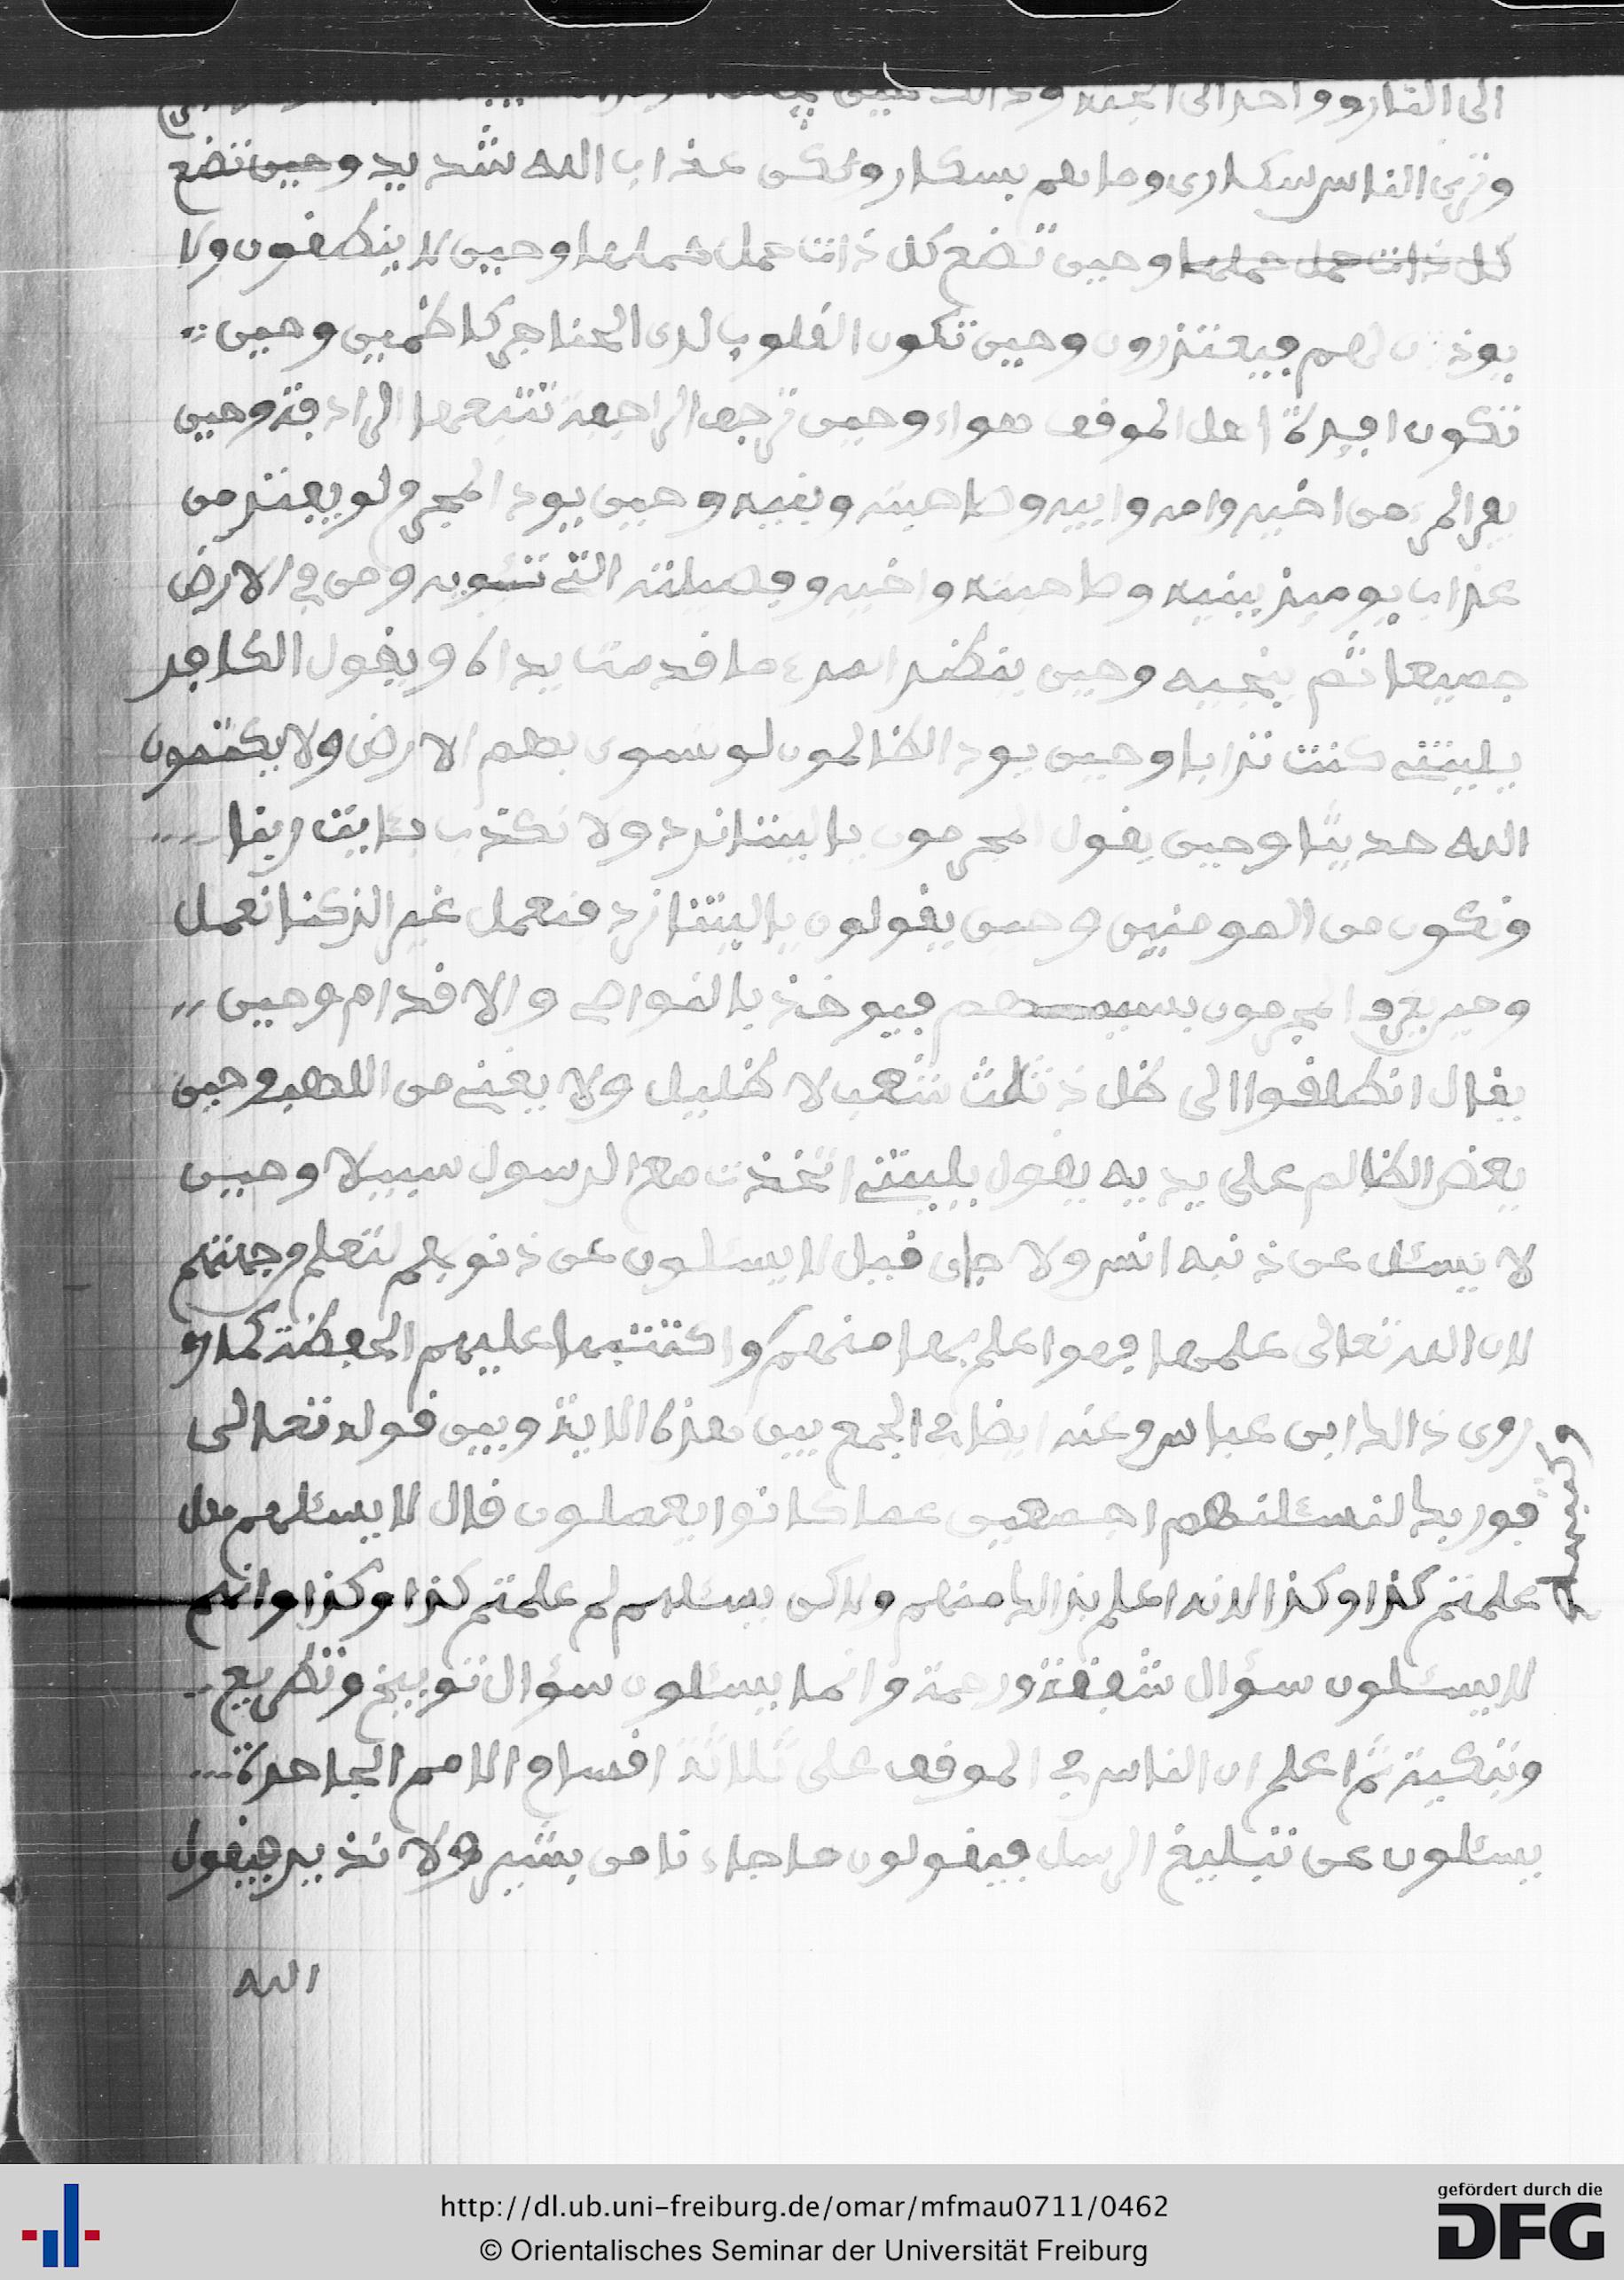 الى النار وواحد الى الجنة وذالك حين
وترى الناس سكارى وما هم بسكار ولكن عذاب الله شديد وحين تضع
كل ذات حمل حملها وحين تضع كل ذات حمل حملها وحين لا ينطقون ولا
يوذن لهم فيعتذرون وحين تكون القلوب لدى الحناجر كاظمين وحين
تكون افيدة اهل الموقف هواء وحين ترجف الراجفة تتبعها الرادفة وحين
يفر المرء من اخيه وامه وابيه وصاحبته وبنيه وحين يود المجرم لو يفتد من
عذاب يوميذ ببنيه وصاحبته واخيه وفصيلته التي تئويه ومن في الارض
جميعا ثم ينجيه وحين ينظر المرء ما قدمت يداه ويقول الكافر
يليتني كنت ترابا وحين يود الظالمون لو تسوى بهم الارض ولا يكتمون
الله حديثا وحين يقول المجرمون يا ليتنا نرد ولا نكذب بئايت ربنا
ونكون من المومنين وحين يقولون يا ليتنا نرد فنعمل غير الذ كنا نعمل
وحين يعرف المجرمون بسيمهم فيوخذ بالنواصي والاقدام وحين
يقال انطلقوا الى ظل ذ ثلث شعب لا ظليل ولا يغني من اللهب وحين
يعض الظالم على يديه يقول يليتني اتخذت مع الرسول سبيلا وحين
لا يسئل عن ذنبه انس ولا جان قيل لا يسئلون عن ذنوبهم لتعلم وجهتهم
لان الله تعالى علمها فهوا علم بها منهم واكتتبها عليهم الحفظة كما و
روى ذالك ابن عباس وعنه ايضا في الجمع بين هذه الاية وبين قوله تعالى
فوربك لنسئلنهم اجمعين عما كانوا يعملون قال لا يسئلهم هل
علمتم كذا وكذا لانه اعلم بذالك منهم ولاكن يسئلهم لم علمتم كذا وكذا وانهم
لا يسئلون سؤال شفقة ورحمة وانما يسئلون سؤال توبيخ وتقريع
وتبكية ثم اعلم ان الناس في الموقف على ثلاثة اقسام الامم الجاحدة
يسئلون عن تبليغ الرسل فيقولون ما جاءنا من بشير ولا نذير فيقول
الله
http://dl.ub.uni-freiburg.de/omar/mfmau0711/0462
© Orientalisches Seminar der Universität Freiburg
gefördert durch die
DFG